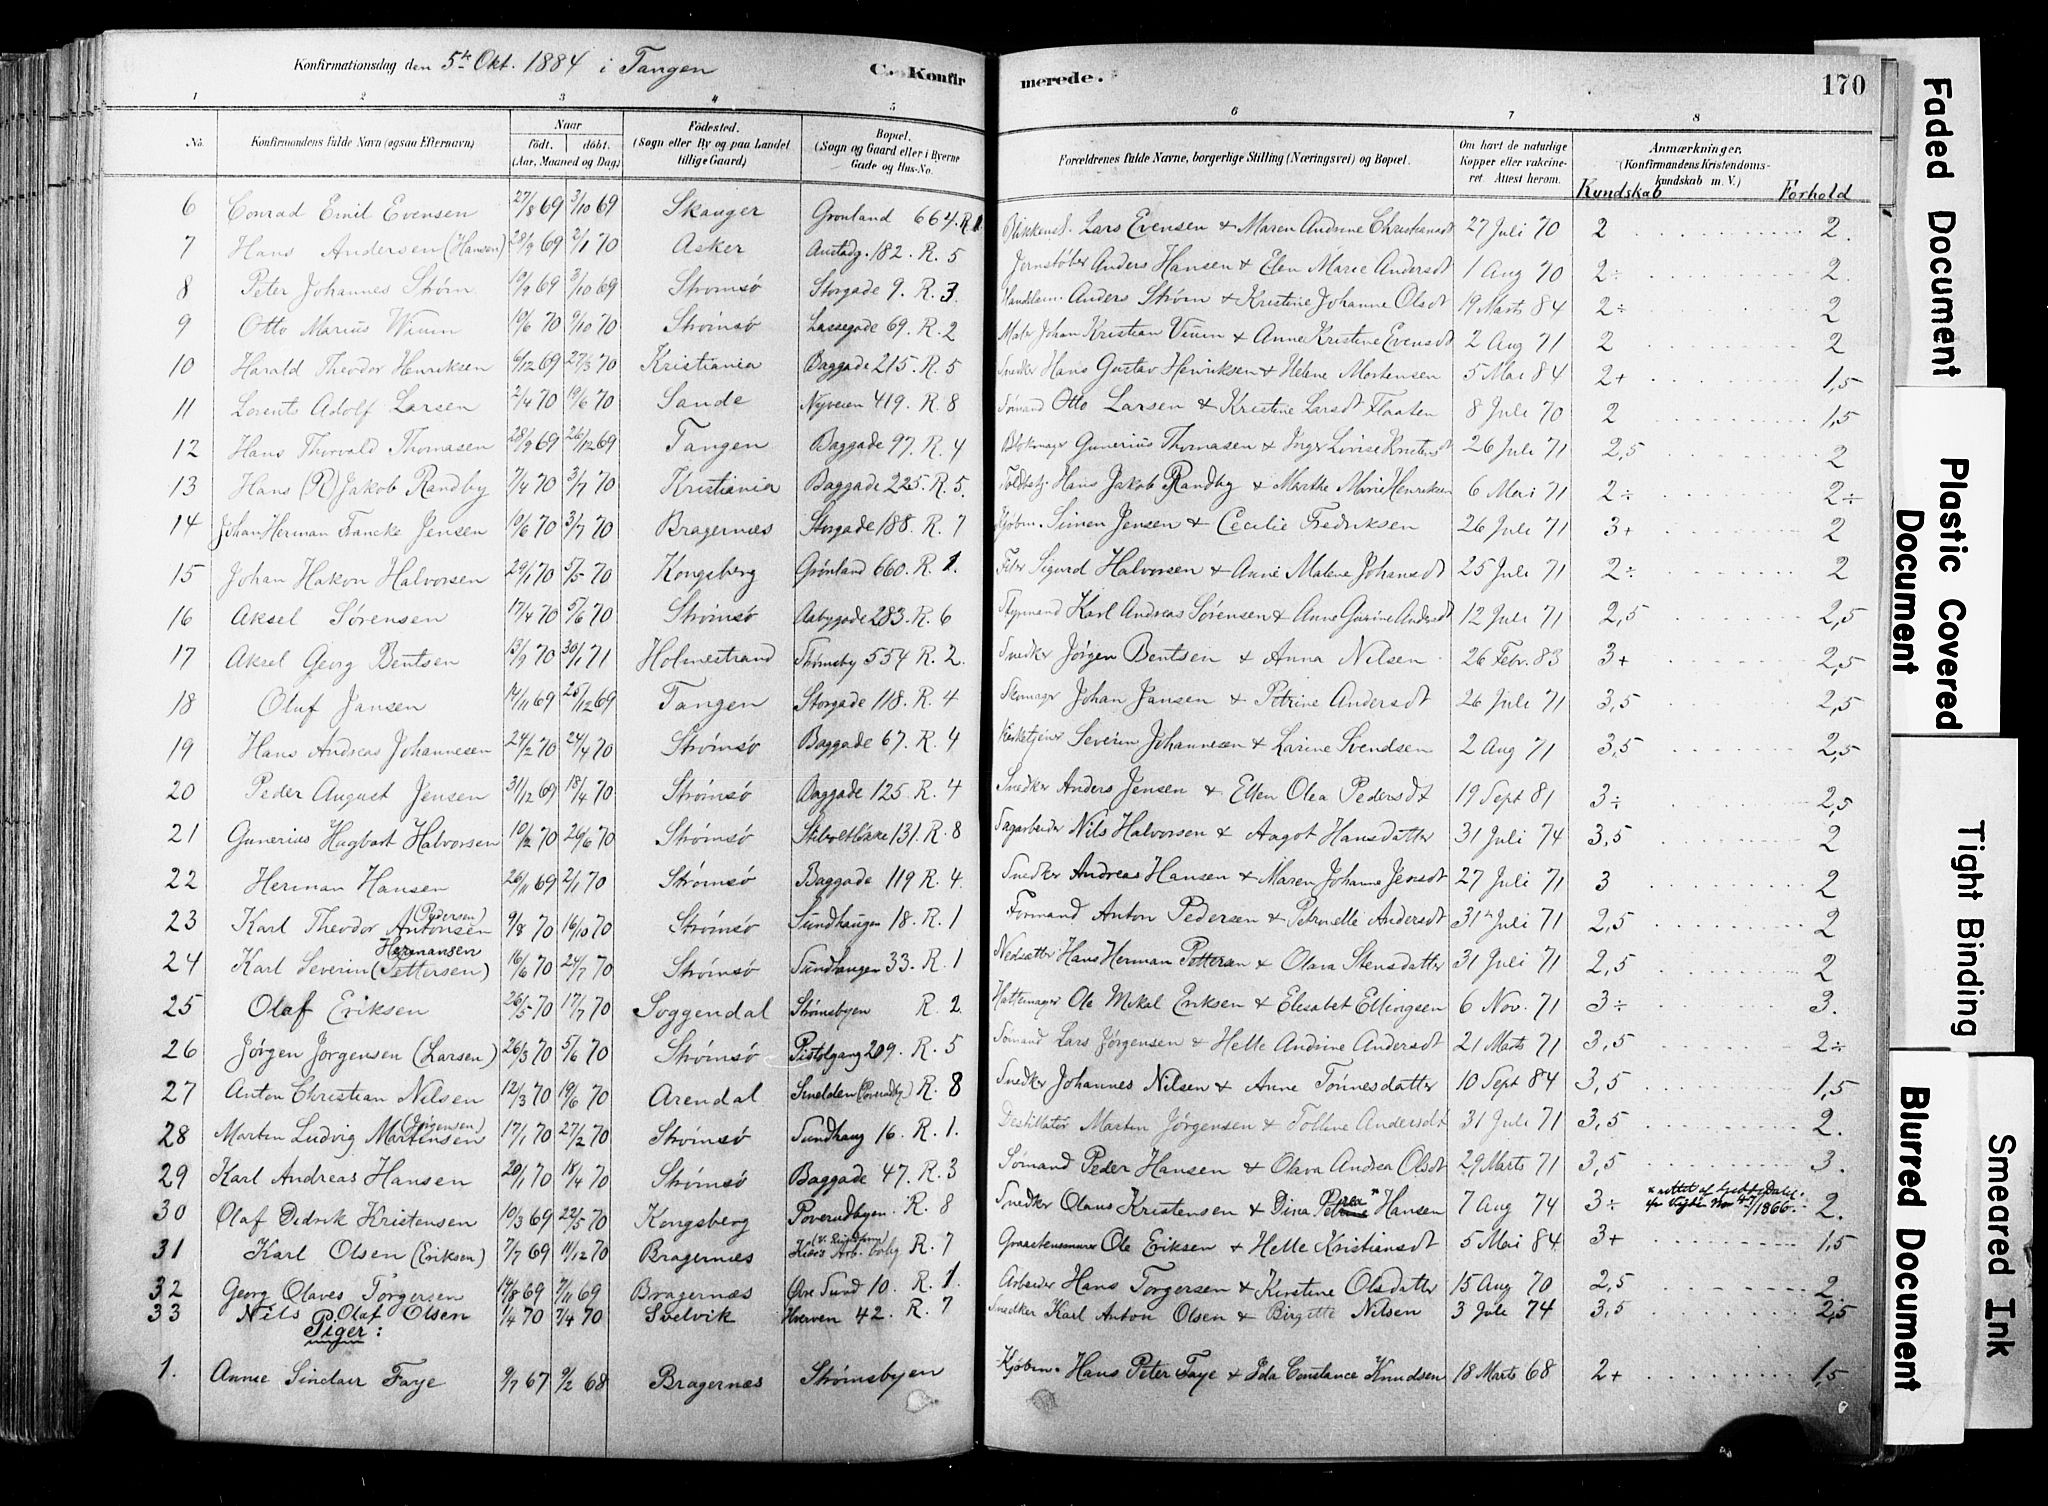 Konfirmationsdag den 5te Okt. 1884 i Tangen C. Konfir merede. 170
1 2 3 4 5 6 7 8
No. Konfirmandens fulde Navn (ogsaa Efternavn) Naar født. døbt. (Aar, Maaned og Dag) Fødested. (Sogn eller By og paa Landet tillige Gaard) Bopæl. (Sogn og Gaard eller i Byerne Gade og Hus-No. Forældrenes fulde Navne, borgerlige Stilling (Næringsvei) og Bopæl. Om havt de naturlige Kopper eller vaccineret. Attest herom. Anmærkninger. (Konfirmandens Kristendomskundskab m. V.) Kundskab Forhold
6 Conrad Emil Evensen 27/8 69 3/10 69 Skauger Grønland 664. R. 1 Lars Evensen & Maren Andrine Christiansdt 27 Juli 70 2 2.
7 Hans Andersen (Hansen) 28/9 69 2/1 70 Asker 182. R. 5 Jernstøber Anders Hansen & Elen Marie Andersdt 1 Aug 70 2÷ 2.
8 Peter Johannes Strøm 19/9 69 3/10 69 Strømsø Storgade 9. R. 3. Handelsm. Anders Strøm & Kristine Johanne Olsdt 19 Marts 84 2÷ 2
9 Otto Marius Wiium 19/6 70 9/10 70 Strømsø Lassegade 69. R. 2 Johan Kristian Viium & Anne Kristine Evensdt 2 Aug 71 2 2
10 Harald Theodor Henriksen 6/12 69 27/3 70 Kristiania Baggade 215. R. 5 Snedker Hans Gustav Henriksen & Helene Mortensen 5 Mai 84 2+ 1,5
11 Lorents Adolf Larsen 2/4 70 19/6 70 Sande Nyveien 419. R. 8 Sømand Otto Larsen & Kristine Larsdt Flaaten 8 Juli 70 2 1,5
12 Hans Thorvald Thomasen 28/9 69 26/12 69 Tangen Baggade 97. R. 4 Blokmager Gunerius Thomasen & Inger Lovise Knutsdt 26 Juli 71 2,5 2
13 Hans (R) Jakob Randby 7/4 70 3/7 70 Kristiania Baggade 225. R. 5. Toldbetj. Hans Jakob Randby & Marthe Marie Henriksen 6 Mai 71 2÷ 2÷
14 Johan Herman Francke Jensen 10/6 70 3/7 70 Bragernæs Storgade 188. R. 7 Kjøbm. Simen Jensen & Cecilie Fredriksen 26 Juli 71 3+ 2
15 Johan Hakon Halvorsen 29/1 70 5/5 70 Kongsberg Grønland 660. R. 1. Filer Sigurd Halvorsen & Anne Malene Johansdt 25 Juli 71 2÷ 2
16 Aksel Sørensen 17/4 70 5/6 70 Strømsø Aabygade 283. R. 6 Styrmand Karl Andreas Sørensen & Anne Gurine Andersdt 12 Juli 71 2,5 2,5
17 Aksel Georg Bentsen 13/9 70 30/1 71 Holmestrand Strømsby 554 R. 2. Snedker Jørgen Bentsen & Anna Nilsen 26 Febr. 83 3+ 2,5
18 Oluf Jansen 17/11 69 25/12 69 Tangen Storgade 118. R. 4 Skomager Johan Jansen & Petrine Andersdt 26 Juli 71 3,5 2,5
19 Hans Andreas Johannesen 24/2 70 24/4 70 Strømsø Baggade 67. R. 4 Kirketjener Severin Johannesen & Larine Svendsen 2 Aug 71 3,5 2,5
20 Peder August Jensen 31/12 69 18/4 70 Strømsø Baggade 125. R. 4 Snedker Anders Jensen & Ellen Olea Pedersdt 19 Sept 81 3÷ 2,5
21 Gunerius Hagbart Halvorsen 10/2 70 26/6 70 Strømsø Stiboltløkke 131. R. 8 Sagarbeider Nils Halvorsen & Aagot Hansdatter 31 Juli 74 3,5 2
22 Herman Hansen 26/11 69 2/1 70 Strømsø Baggade 119 R. 4. Snedker Andreas Hansen & Maren Johanne Jensdt 27 Juli 71 3 2
23 Karl Theodor Antonsen (Pedersen) 9/8 70 16/10 70 Strømsø Sundhaugen 18. R. 1 Formand Anton Pedersen & Petronelle Andersdt 31te Juli 71 2,5 2
24 Karl Severin Hermansen (Pettersen) 16/6 70 24/7 70 Strømsø Sundhaugen 33. R. 1 Nedsætter Hans Herman Pettersen & Olava Stensdatter 31 Juli 71 2,5 2
25 Olaf Eriksen 26/5 70 17/7 70 Soggendal Strømsbyen R. 2 Hattemager Ole Mikal Eriksen & Elisabet Ellingsen 6 Nov. 71 3÷ 3.
26 Jørgen Jorgensen (Larsen) 26/3 70 5/6 70 Strømsø Pistolgang 209. R. 5 Sømand Lars Jørgensen & Helle Andrine Andersdt 21 Marts 71 3,5 2÷
27 Anton Christian Nilsen 12/3 70 19/6 70 Arendal R. 8 Snedker Johannes Nilsen & Anne Tønnesdatter 10 Sept 84 3,5 1,5
28 Morten Ludvig Martensen (Jørgensen) 17/1 70 27/2 70 Strømsø Sundhaug 16. R. 1. Destillatør Martin Jørgensen & Tolline Andersdt 31 Juli 71 3,5 2.
29 Karl Andreas Hansen 20/1 70 18/4 70 Strømsø Baggade 47. R. 3 Sømand Peder Hansen & Olava Andrea Olsdt 29 Marts 71 3,5 3.
30 Olaf Didrik Kristensen 10/3 69 22/5 70 Kongsberg Poverudbyen. R. 8 Snedker Olaus Kristensen & Dina Hansen 7 Aug 74 3÷ 2.
31 Karl Olsen (Eriksen) 7/7 69 11/12 70 Bragernæs Kiøis Arb. bolig R. 7 Ole Eriksen & Helle Kristiansdt 5 Mai 84 3+ 1,5
32 Georg Olaves Torgersen 14/8 69 7/11 69 Bragernæs Øvre Sund 10. R. 1. Arbeider Hans Torgersen & Kirstine Olsdatter 15 Aug 70 2,5 2.
33 Nils P. Olaf Olsen 1/4 70 7/4 70 Svelvik Hverven 42. R. 7 Snedker Karl Anton Olsen & Birgitte Nilsen 3 Juli 74 3,5 2,5
Piger:
1. Annie Sinclair Faye 9/7 67 9/2 68 Bragernæs Strømsbyen Kjøbm. Hans Peter Faye & Ida Constance Knudsen 18 Marts 68 2+ 1,5
Faded Document
Plastic Covered Document
Tight Binding
Blurred Document
Smeared Ink